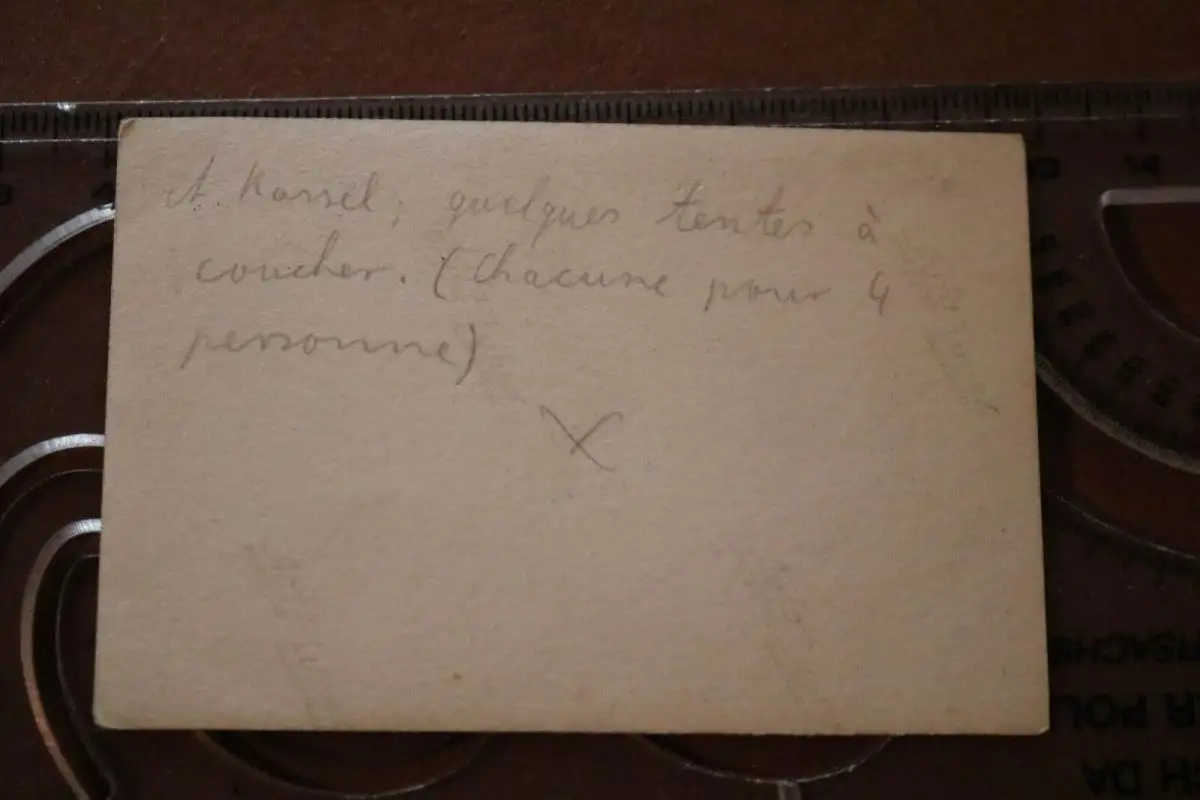 A. Kassel; quelques tentes à
coucher. (Chacune pour 4
personne)
X
14
RSACHE
R POL
CH DA